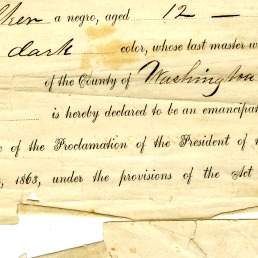 a negro, aged 12 —
dark color, whose last master w
of the County of Washington
is hereby declared to be an emancipat
e of the Proclamation of the President of
, 1863, under the provisions of the Act